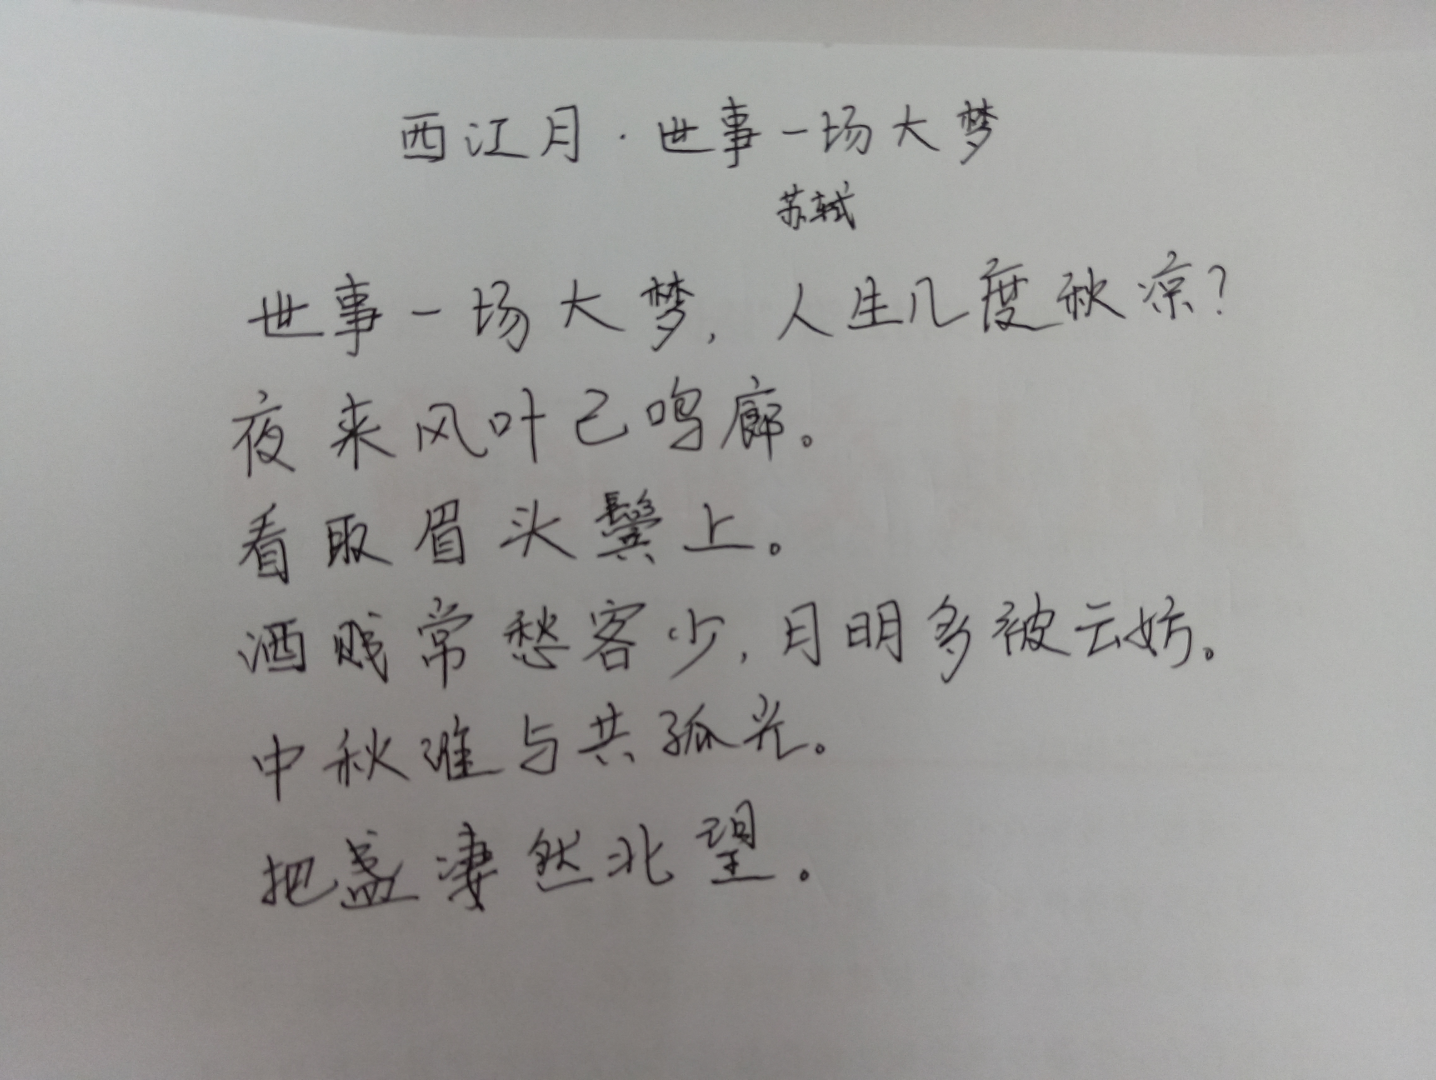 西江月·世事一场大梦
苏轼
世事一场大梦，人生几度秋凉？
夜来风叶已鸣廊。
看取眉头鬓上。
酒贱常愁客少，月明多被云妨。
中秋谁与共孤光。
把盏凄然北望。